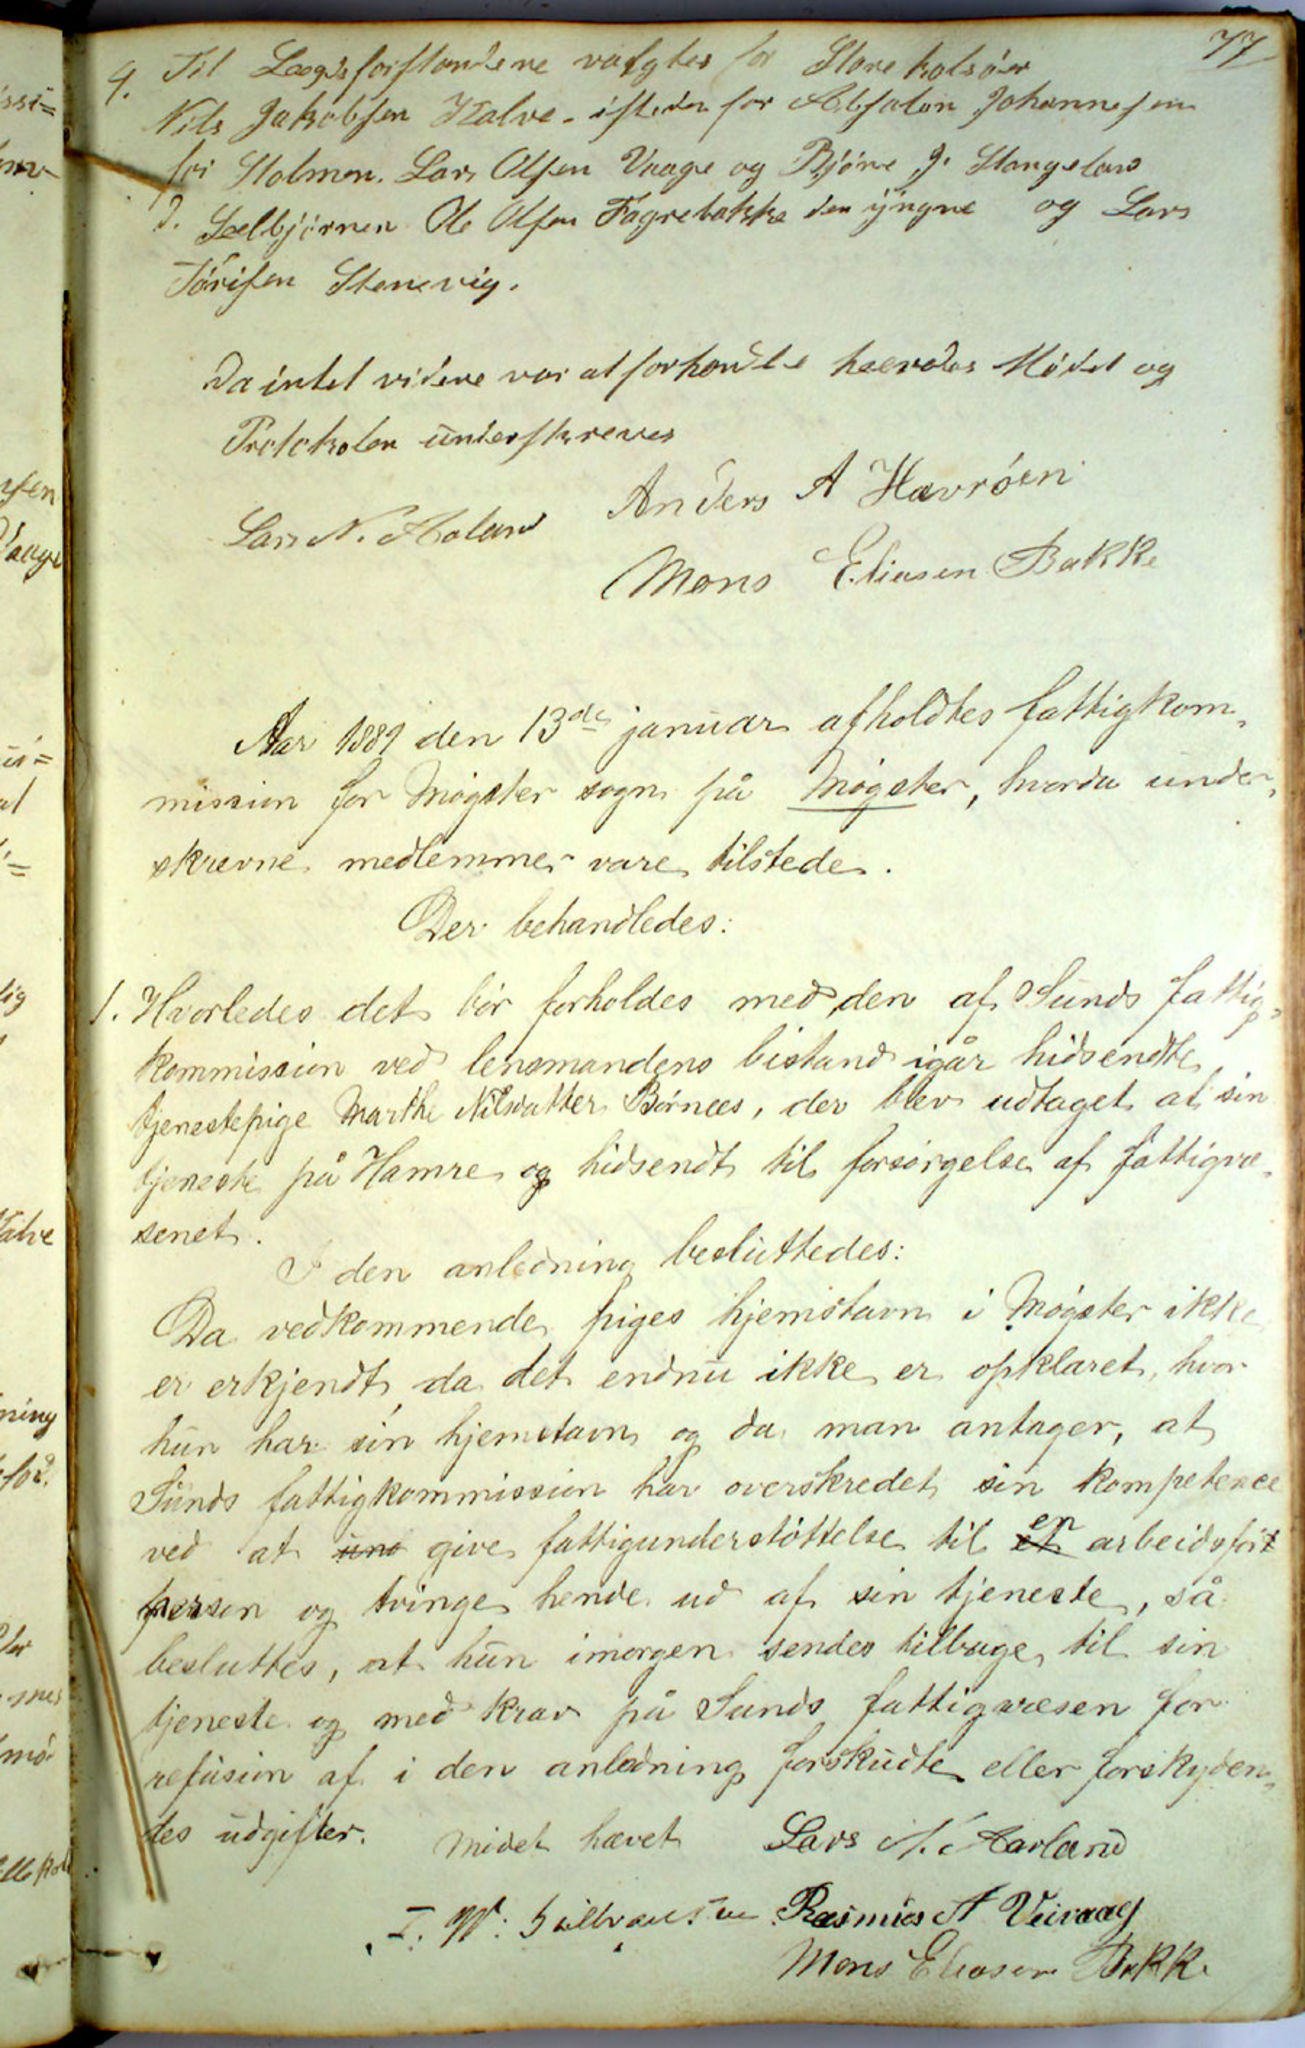 77
4. Til Lægdsforstandere valgtes for Storekalsøen
Nils Jakobsen Kalve. isteden for Absalon Johannesen
for Stolmen. Lars Olsen Vaage og Bjørne J. Stangeland
d. Selbjørnen Ole Olsen Fagrebakke den yngre og Lars
Tørrisen Stenevig.
Da intet videre var at forhandle hævedes Mødet og
Protokolen underskreves
Anders A Havrøen
Lars N. Aaland
Mons Eliasen Bakke
Aar 1889 den 13de januar afholdtes fattigkom-
mission for Møgster sogn på Møgster, hvorda under-
skrevne medlemmer vare tilstede.
Der behandledes:
1. Hvorledes det bør forholdes med den af Sunds fattig-
kommission ved lensmandens bistand igår hidsendte
tjenestepige Marthe Nilsdatter Børnæs, der blev udtaget at sin
tjeneste på Hamre og hidsendt til forsørgelse af fattigvæ-
senet.
I den anledning besluttedes:
Da vedkommende piges hjemstavn i Møgster ikke
er erkjendt, da det endnu ikke er opklaret, hvor
hun har sin hjemstavn og da man antager, at
Sunds fattigkommission har overskredet sin kompetence
ved at und give fattigunderstøttelse til et en arbeidsfør
person og tvinge hende ud af sin tjeneste, så
besluttes, at hun imorgen sendes tilbage til sin
tjeneste og med krav på Sunds fattigvæsen for
refusion af i den anledning forskudte eller forskyden-
des udgifter. Mødet hævet Lars N. Aarland
Rasmus A Veivaag
Mons Eliasen Bakke